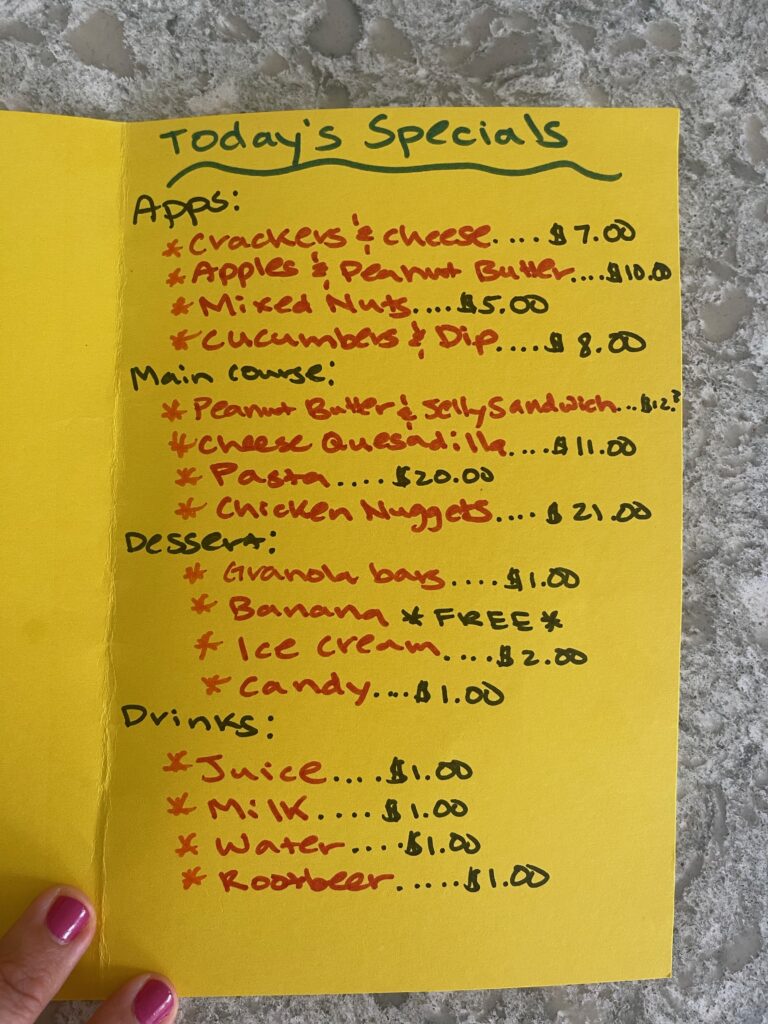 Today's Specials
Apps:
*Crackers & cheese....$7.00
*Apples & Peanut Butter....$10.00
*Mixed Nuts....$5.00
*Cucumbers & Dip....$8.00
Main course:
*Peanut Butter & Jelly Sandwich...$12.
*Cheese Quesadilla....$11.00
*Pasta....$20.00
*Chicken Nuggets....$21.00
Dessert:
*Granola bars....$1.00
*Banana *FREE*
*Ice cream....$2.00
*Candy....$1.00
Drinks:
*Juice....$1.00
*Milk....$1.00
*Water....$1.00
*Rootbeer.....$1.00